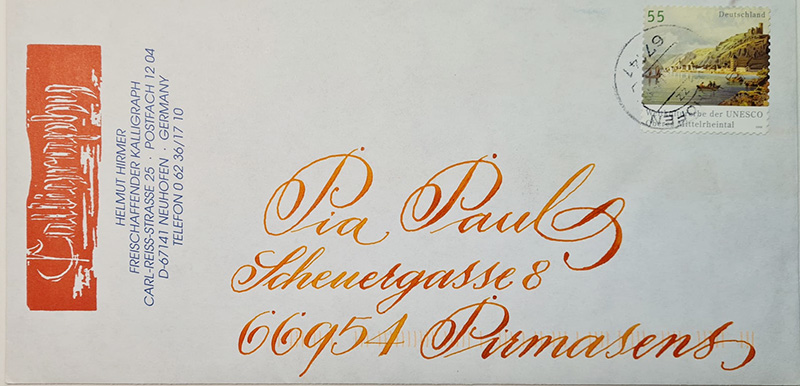 Calligraphy
HELMUT HIRMER
FREISCHAFFENDER KALLIGRAPH
CARL-REISS-STRASSE 25 · POSTFACH 12 04
D-67141 NEUHOFEN · GERMANY
TELEFON 0 62 36/17 10
55 Deutschland
der UNESCO
Mittelrheintal
6714
OFEN
Pia Paul
Scheuergasse 8
66954 Pirmasens